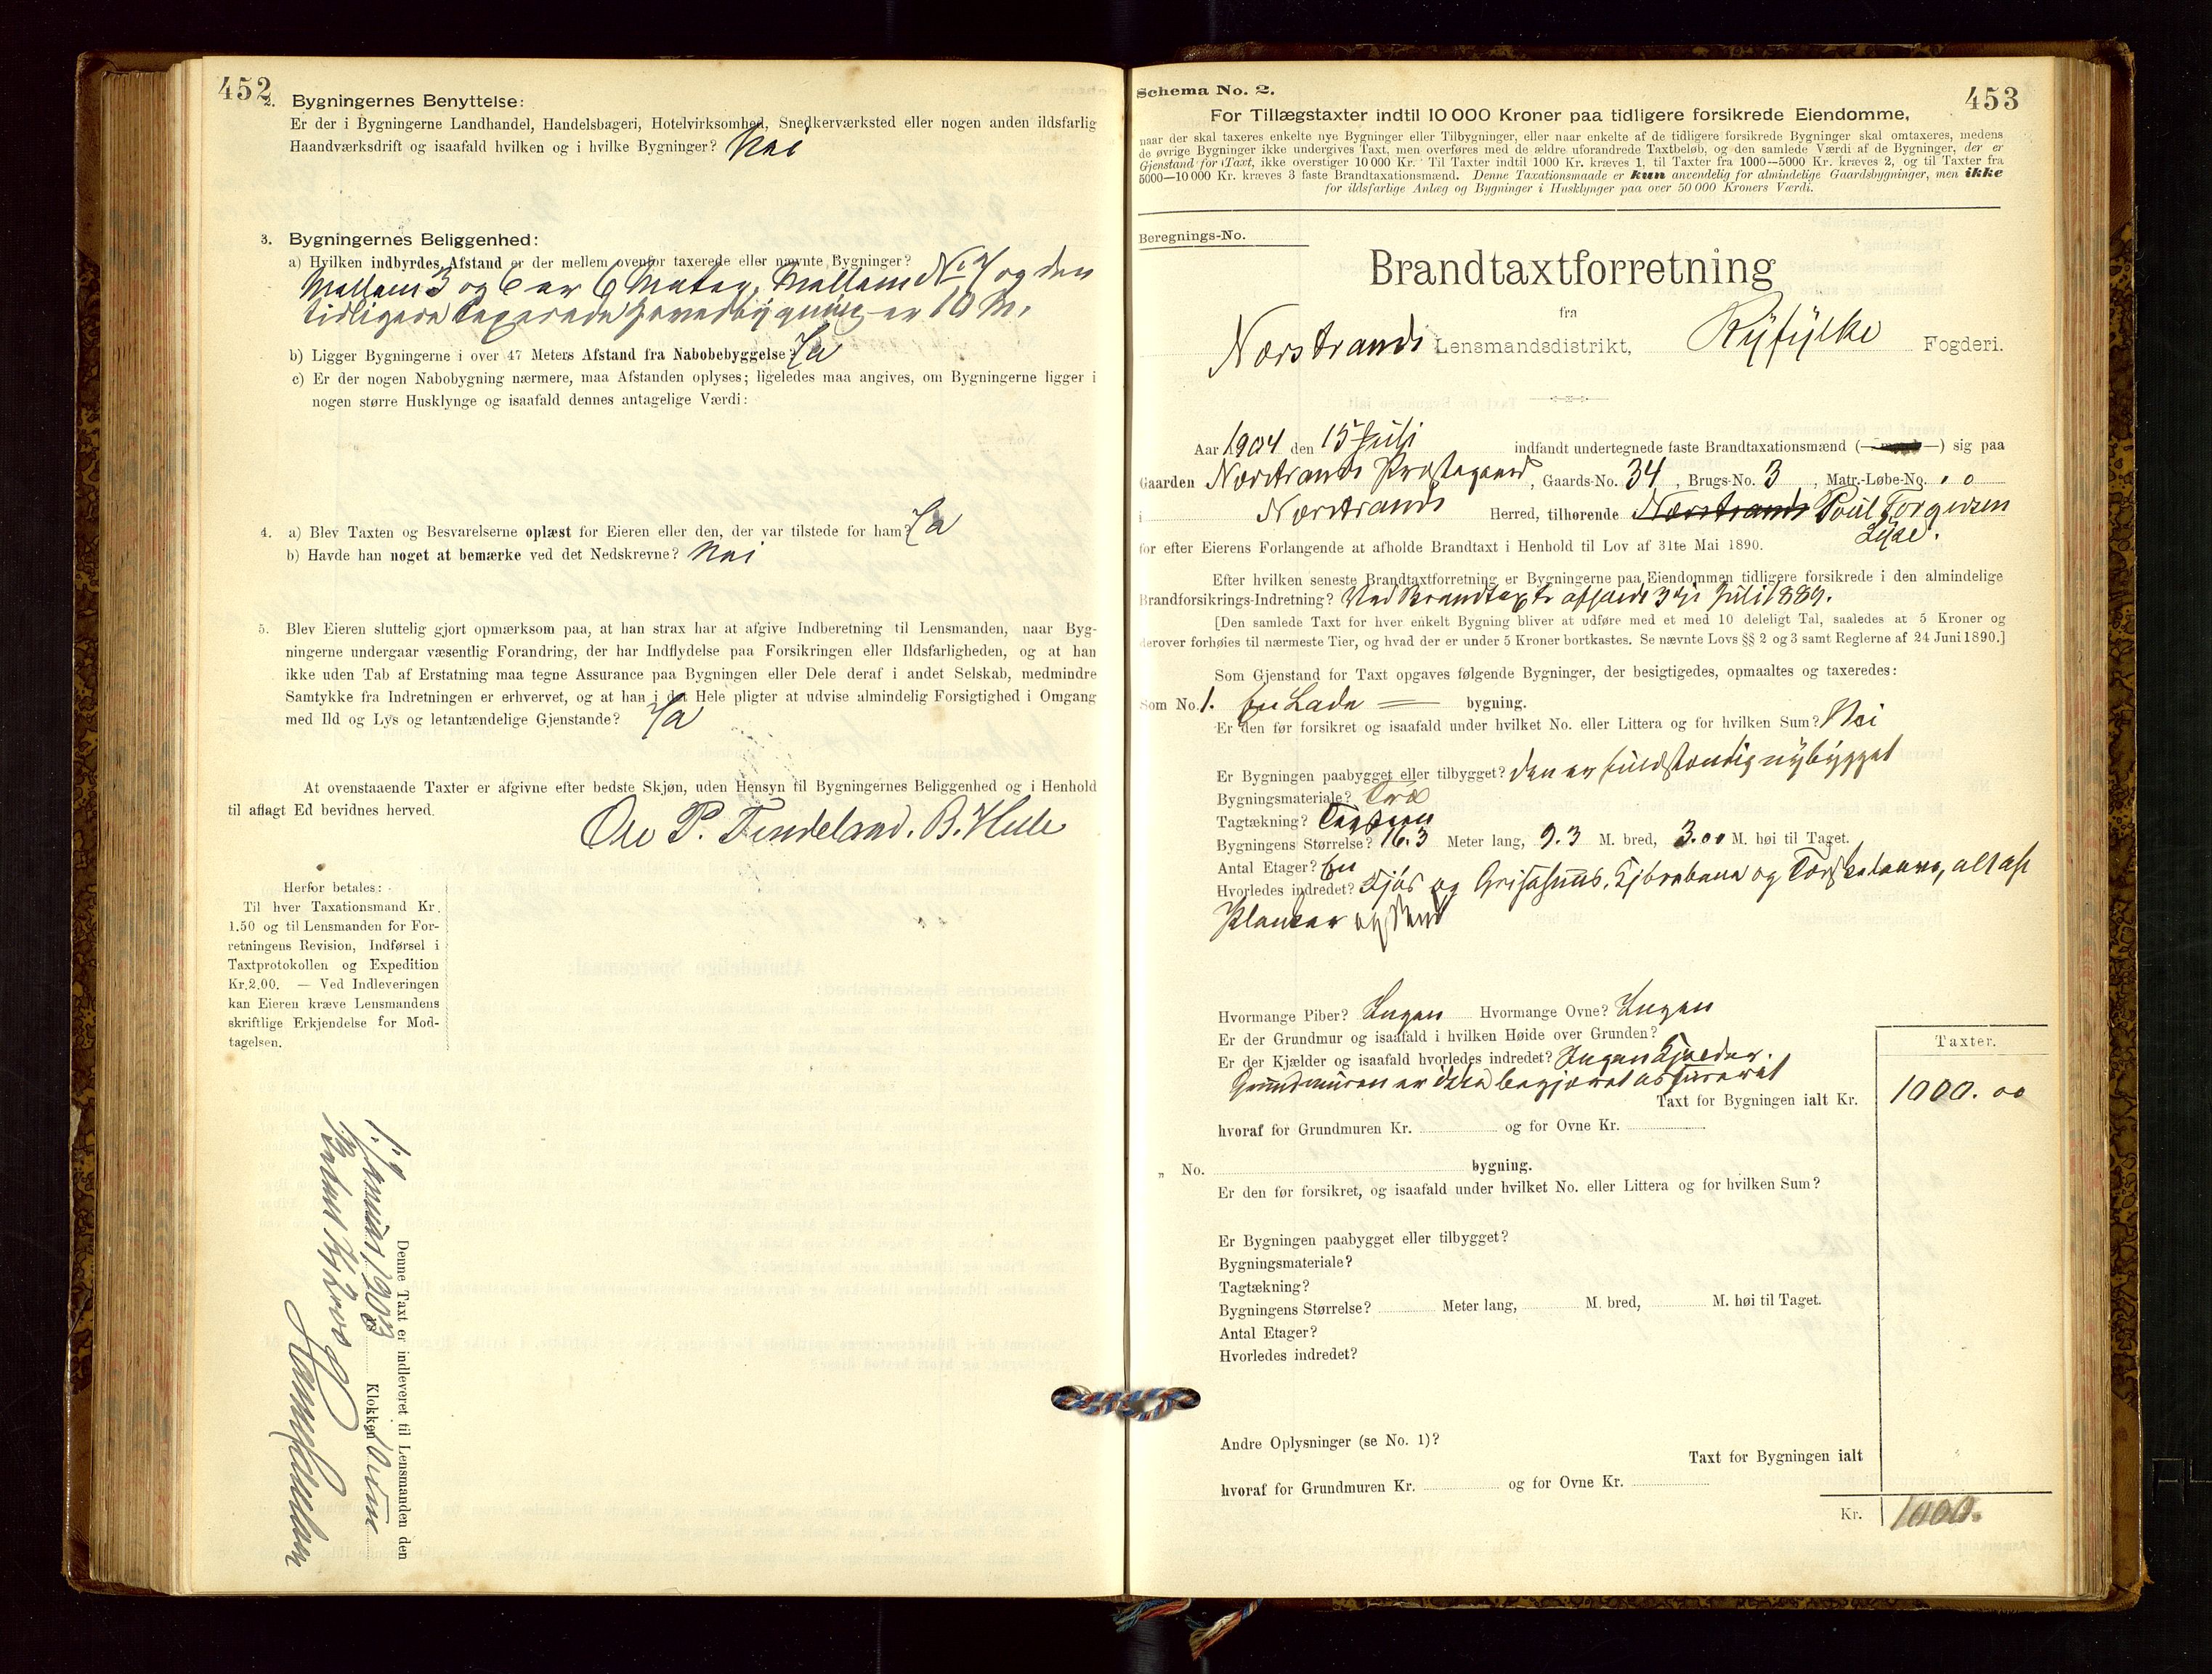 452
2. Bygningernes Benyttelse:
Er der i Bygningerne Landhandel, Handelsbageri, Hotelvirksomhed, Snedkerværksted eller nogen anden ildsfarlig
Haandværksdrift og isaafald hvilken og i hvilke Bygninger? Nei
3. Bygningernes Beliggenhed:
a) Hvilken indbyrdes Afstand er der mellem ovenfor taxerede eller nævnte Bygninger?
Mellem 3 og 6 er 6 Meter, Mellem No 7 og den
tidligere taxerede hovedbygning er 10 M.
b) Ligger Bygningerne i over 47 Meters Afstand fra Nabobebyggelse? Ja
c) Er der nogen Nabobygning nærmere, maa Afstanden oplyses; ligeledes maa angives, om Bygningerne ligger i
nogen større Husklynge og isaafald dennes antagelige Værdi:
4. a) Blev Taxten og Besvarelserne oplæst for Eieren eller den, der var tilstede for ham? Ja
b) Havde han noget at bemærke ved det Nedskrevne? Nei
5. Blev Eieren sluttelig gjort opmærksom paa, at han strax har at afgive Indberetning til Lensmanden, naar Byg-
ningerne undergaar væsentlig Forandring, der har Indflydelse paa Forsikringen eller Ildsfarligheden, og at han
ikke uden Tab af Erstatning maa tegne Assurance paa Bygningen eller Dele deraf i andet Selskab, medmindre
Samtykke fra Indretningen er erhvervet, og at han i det Hele pligter at udvise almindelig Forsigtighed i Omgang
med Ild og Lys og letantændelige Gjenstande? Ja
At ovenstaaende Taxter er afgivne efter bedste Skjøn, uden Hensyn til Bygningernes Beliggenhed og i Henhold
til aflagt Ed bevidnes herved.
Ole P. Tendeland. B. Hule
Herfor betales:
Til hver Taxationsmand Kr.
1.50 og til Lensmanden for For-
retningens Revision, Indførsel i
Taxtprotokollen og Expedition
Kr. 2.00. — Ved Indleveringen
kan Eieren kræve Lensmandens
skriftlige Erkjendelse for Mod-
tagelsen.
Denne Taxt er indleveret til Lensmanden den
1. Januar 1903 Klokken
453
Schema No. 2.
For Tillægstaxter indtil 10 000 Kroner paa tidligere forsikrede Eiendomme,
naar der skal taxeres enkelte nye Bygninger eller Tilbygninger, eller naar enkelte af de tidligere forsikrede Bygninger skal omtaxeres, medens
de øvrige Bygninger ikke undergives Taxt, men overføres med de ældre uforandrede Taxtbeløb, og den samlede Værdi af de Bygninger, der er
Gjenstand for Taxt, ikke overstiger 10 000 Kr. Til Taxter indtil 1000 Kr. kræves 1, til Taxter fra 1000—5000 Kr. kræves 2, og til Taxter fra
5000—10 000 Kr. kræves 3 faste Brandtaxationsmænd. Denne Taxationsmaade er kun anvendelig for almindelige Gaardsbygninger, men ikke
for ildsfarlige Anlæg og Bygninger i Husklynger paa over 50 000 Kroners Værdi.
Beregnings-No.
Brandtaxtforretning
fra
Nærstrands Lensmandsdistrikt, Ryfylke Fogderi.
Aar 1904 den 15 Juli indfandt undertegnede faste Brandtaxationsmænd (— —) sig paa
Gaarden Nærstrands Prestegaard, Gaards-No. 34, Brugs-No. 3, Matr.-Løbe-No. „ o
i Nærstrands Herred, tilhørende Nærstrands Poul Torgersen
Lyse.
for efter Eierens Forlangende at afholde Brandtaxt i Henhold til Lov af 31te Mai 1890.
Efter hvilken seneste Brandtaxtforretning er Bygningerne paa Eiendommen tidligere forsikrede i den almindelige
Brandforsikrings-Indretning? Ved Brandtaxt afholdt 3die Juli 1889.
[Den samlede Taxt for hver enkelt Bygning bliver at udføre med et med 10 deleligt Tal, saaledes at 5 Kroner og
derover forhøies til nærmeste Tier, og hvad der er under 5 Kroner bortkastes. Se nævnte Lovs §§ 2 og 3 samt Reglerne af 24 Juni 1890.]
Som Gjenstand for Taxt opgaves følgende Bygninger, der besigtigedes, opmaaltes og taxeredes:
Som No. 1. En Lade bygning.
Er den før forsikret og isaafald under hvilket No. eller Littera og for hvilken Sum? Nei
Er Bygningen paabygget eller tilbygget? den er fuldstændig nybygget
Bygningsmateriale? Træ
Tagtækning? Tagsten
Bygningens Størrelse? 16.3 Meter lang, 9.3 M. bred, 3.00 M. høi til Taget.
Antal Etager? En
Hvorledes indredet? Fjøs og Grisehus, Kjørebane og Tørskelaave, alt af
Planker og Bord
Hvormange Piber? Ingen Hvormange Ovne? Ingen
Er der Grundmur og isaafald i hvilken Høide over Grunden?
Er der Kjælder og isaafald hvorledes indredet? Ingen Kjælder.
Grundmuren er ikke begjæret assureret
Taxter.
Taxt for Bygningen ialt Kr. 1000. 00
hvoraf for Grundmuren Kr. og for Ovne Kr.
„ No. bygning.
Er den før forsikret, og isaafald under hvilket No. eller Littera og for hvilken Sum?
Er Bygningen paabygget eller tilbygget?
Bygningsmateriale?
Tagtækning?
Bygningens Størrelse? Meter lang, M. bred, M. høi til Taget.
Antal Etager?
Hvorledes indredet?
Andre Oplysninger (se No. 1)?
Taxt for Bygningen ialt
hvoraf for Grundmuren Kr. og for Ovne Kr.
Kr. 1000.